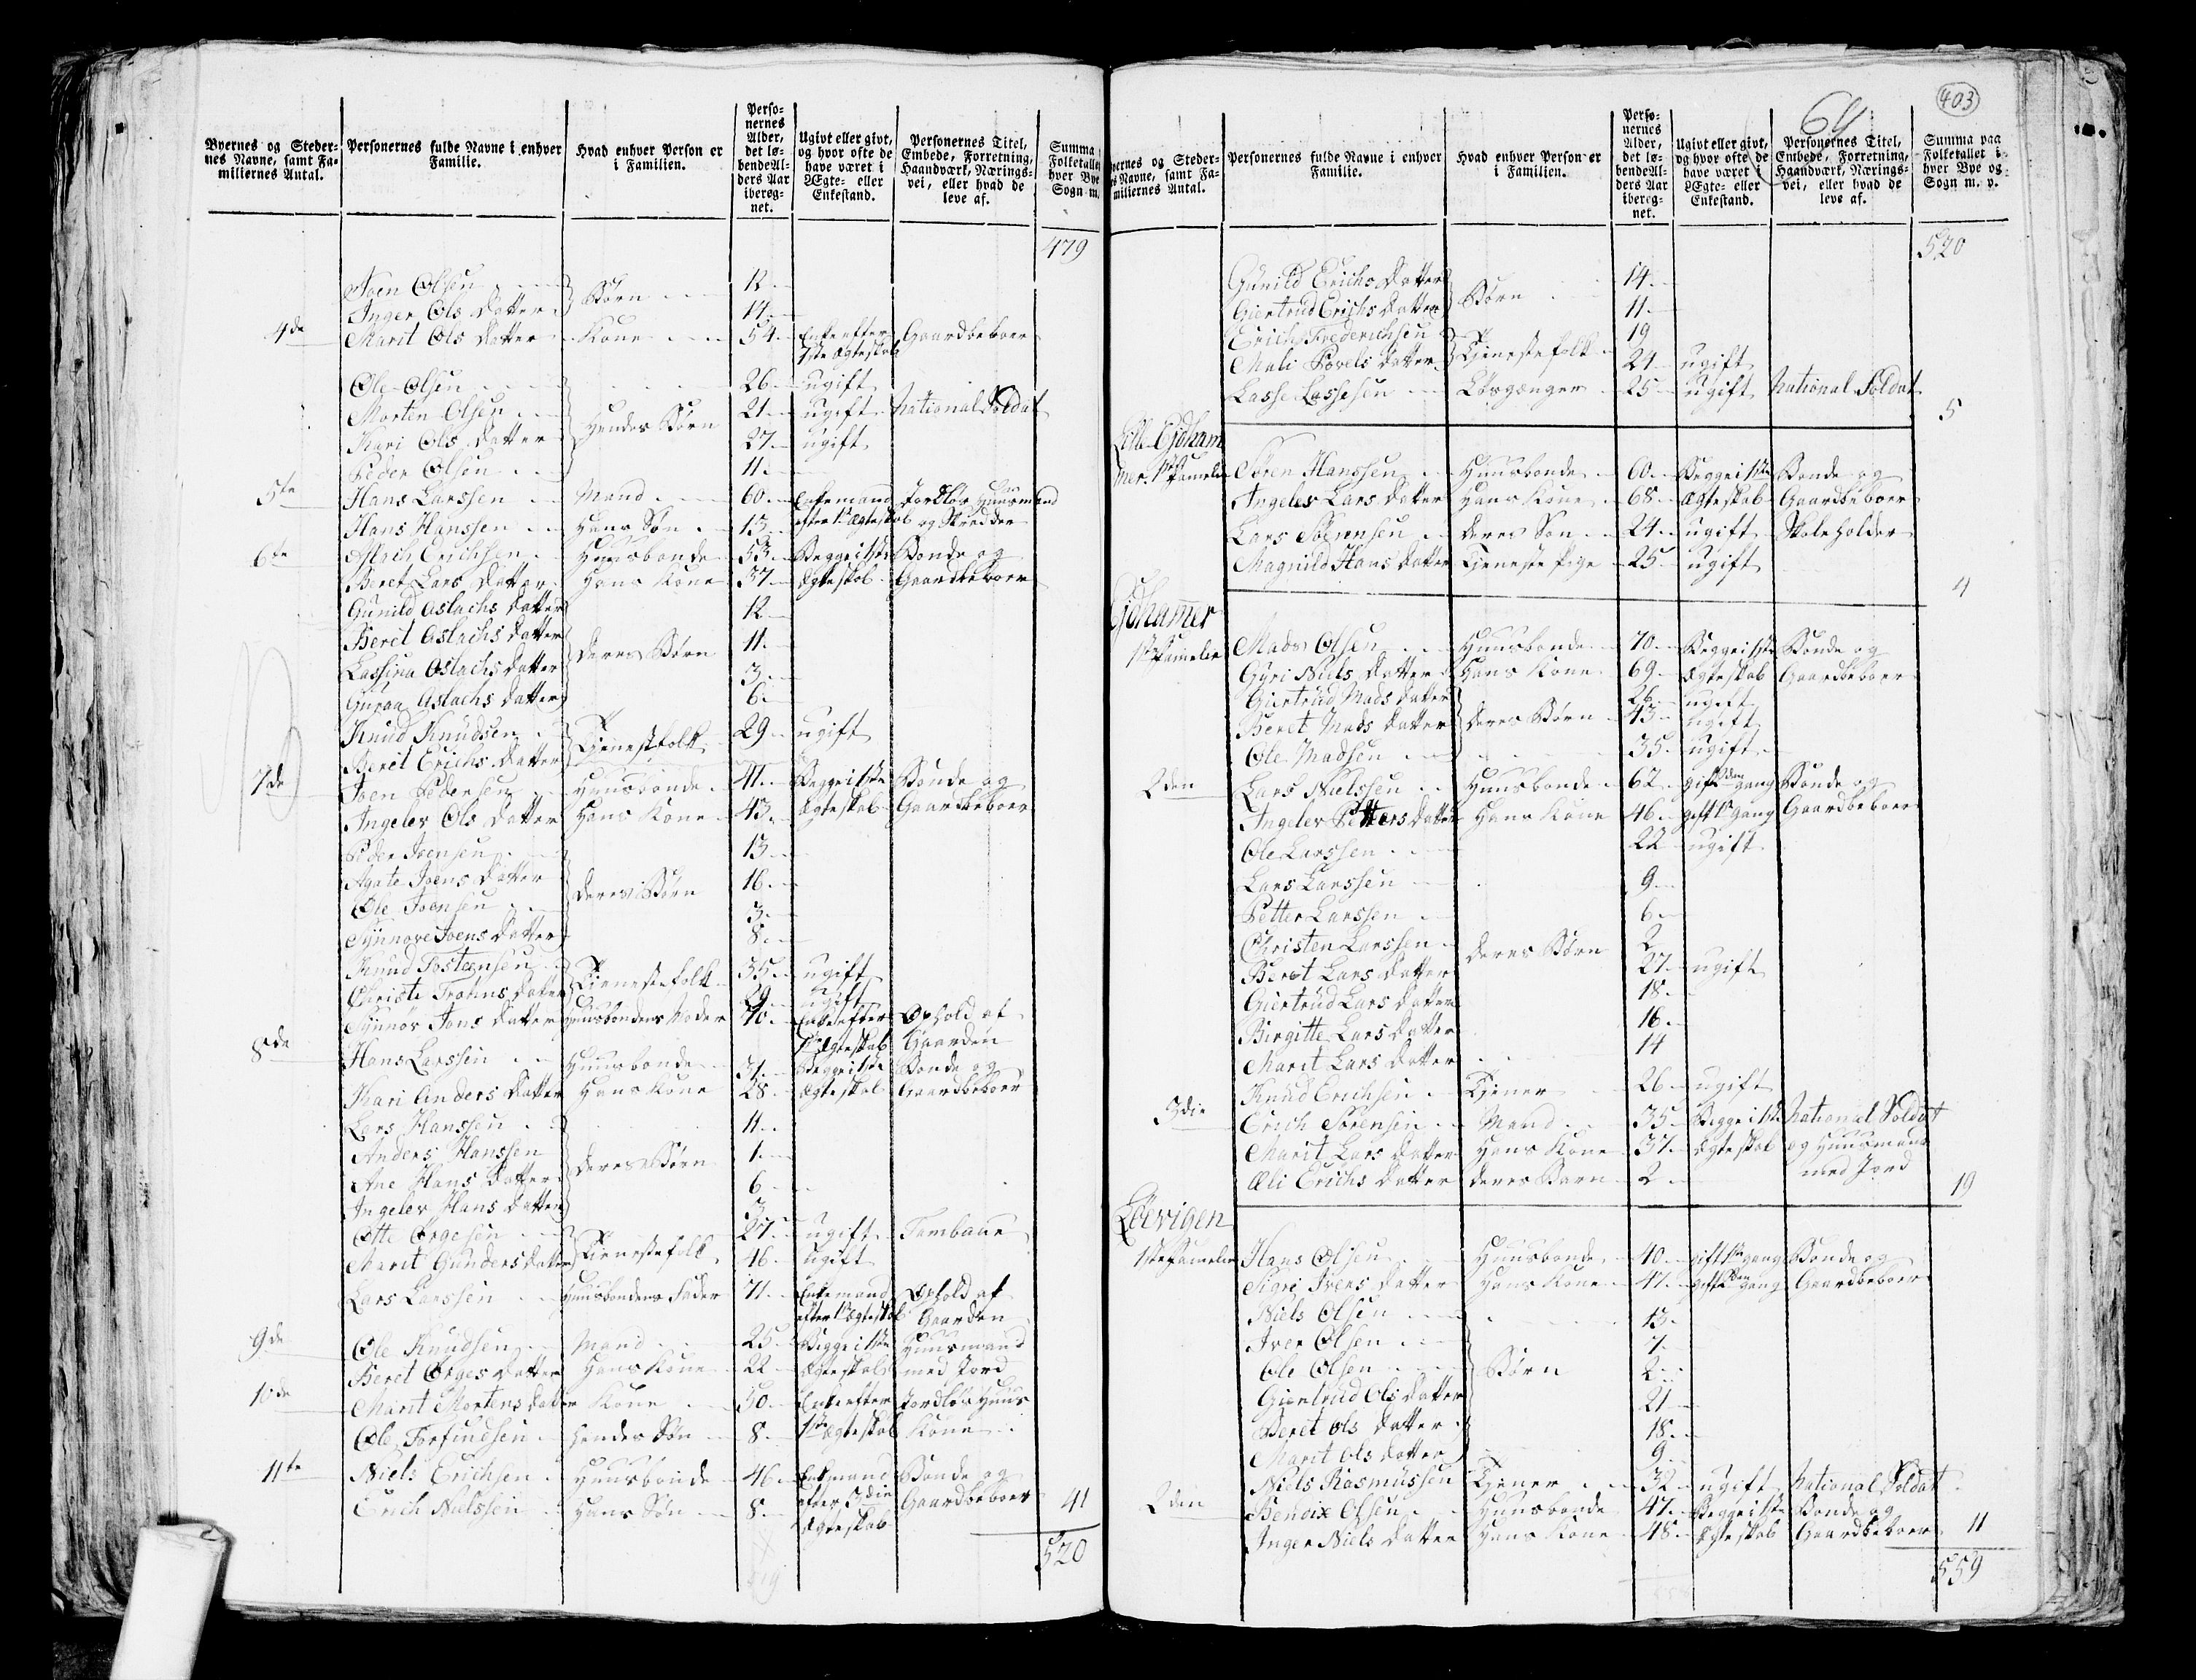 Byernes og Steder-
nes Navne, samt Fa-
miliernes Antal.
Personernes fulde Navne i enhver
Familie.
Hvad enhver Person er
i Familien.
Perso-
nernes
Alder,
det lø-
bende Al-
ders Aar
ibereg-
net.
Ugivt eller givt,
og hvor ofte de
have været i
Ægte- eller
Enkestand.
Personernes Titel,
Embede, Forretning,
Haandværk, Nærings-
vei, eller hvad de
leve af.
Summa
Folketallet
hver Bye
Sogn m.
479
Joen Olsen Børn 12
Inger Ols Datter 14
4de Marit Ols Datter Kone 54 Enke efter Gaardbeboer
1ste Ægteskab
Ole Olsen 26 ugift
Morten Olsen Hendes Børn 21 ugift National Soldat
Mari Ols Datter 27 ugift
Peder Olsen 11
5te Hans Larssen Mand 60 Enkemand Jordløs Huusmand
Hans Hanssen Hans Søn 13 efter 1ste Ægteskab og Skredder
6te Aslach Erichsen Huusbonde 53 Begge i 1ste Bonde og
Beret Lars Datter Hans Kone 37 Ægteskab Gaardbeboer
Gunild Aslachs Datter 12
Beret Aslachs Datter deres Børn 11
Lassina Aslachs Datter 3
Guroa Aslachs Datter 6
Knud Knudsen Tienestefolk 29 ugift
Beret Erichs Datter
7de Joen Pedersen Huusbonde 41 Begge i 1ste Bonde og
Ingeler Ols Datter Hans Kone 43 Ægteskab Gaardbeboer
Peder Joensen 13
Agate Joens Datter deres Børn 16
Ole Joensen 3
Synnove Joens Datter 8
Knud Tosteensen Tienestefolk 35 ugift
Christi Datter 29 ugift
Synnør Jons Datter Huusbondens Moder 70 Enke efter Ophold af
1ste Ægteskab Gaarden
8de Hans Larssen Huusbonde 31 Begge i 1ste Bonde og
Kari Anders Datter Hans Kone 28 Ægteskab Gaardbeboer
Lars Hanssen 11
Anders Hanssen deres Børn 1
Ane Hans Datter 6
Ingeler Hans Datter 3
Otte Ørgesen Tienestefolk 27 ugift Tambour
Marit Gunders Datter 46 ugift
Lars Larssen Huusbondens Fader 71 Enkemand Ophold af
efter 1ste Ægteskab Gaarden
9de Ole Knudsen Mand 25 Begge i 1ste Huusmand
Beret Ørges Datter Hans Kone 22 Ægteskab med Jord
10de Marit Mortens Datter Kone 50 Enke efter Jordløs Huus
Ole Torfindsen hendes Søn 8 1ste Ægteskab Kone
11te Niels Erichsen Huusbonde 46 Enkemand Bonde og
Erich Nielssen Hans Søn 8 efter 3die Gaardbeboer 41
Ægteskab
520
519
403
64
Byernes og Steder-
nes Navne, samt Fa-
miliernes Antal.
Personernes fulde Navne i enhver
Familie.
Hvad enhver Person er
i Familien.
Perso-
nernes
Alder,
det lø-
bende Al-
ders Aar
ibereg-
net.
Ugivt eller givt,
og hvor ofte de
have været i
Ægte- eller
Enkestand.
Personernes Titel,
Embede, Forretning,
Haandværk, Nærings-
vei, eller hvad de
leve af.
Summa paa
Folketallet i
hver Bye og
Sogn m. v.
520
Gunild Erichs Datter Børn 14
Giertrud Erichs Datter 11
Erich Frederichsen Tienestefolk 19
Mali Povels Datter 24 ugift
Lasse Lassesen Løsgænger 25 ugift National Soldat
5
Lille Eydham
mer. 1ste Famelie Søren Hanssen Huusbonde 60 Begge i 1ste Bonde og
Angeler Lars Datter Hans Kone 68 Ægteskab Gaardbeboer
Lars Sørensen deres Søn 24 ugift Skoleholder
Magnild Hans Datter Tieneste Pige 25 ugift
4
Eydhammer
1ste Famelie Mads Olsen Huusbonde 70 Begge i 1ste Bonde og
Gyri Niels Datter Hans Kone 69 Ægteskab Gaardbeboer
Giertrud Mads Datter 26 ugift
Beret Mads Datter deres Børn 43 ugift
Ole Madsen 35 ugift
2den Lars Nielssen Huusbonde 62 gift 2den gang Bonde og
Angeler Petters Datter Hans Kone 46 gift 1ste Gang Gaardbeboer
Ole Larssen 22 ugift
Lars Larssen 9
Petter Larssen 6
Christen Larssen deres Børn 2
Beret Lars Datter 27 ugift
Giertrud Lars Datter 18
Birgitte Lars Datter 16
Marit Lars Datter 14
Knud Erichsen Tiener 26 ugift
3die Erich Sørensen Mand 35 Begge i 1ste National Soldat
Marit Lars Datter Hans Kone 37 Ægteskab og Huusmand
Eli Erichs Datter deres Barn 2 med Jord
19
Løevigen
1ste Famelie Hans Olsen Huusbonde 40 gift 1ste gang Bonde og
Sigri Ivers Datter Hans Kone 47 gift 2den gang Gaardbeboer
Niels Olsen 13
Iver Olsen 7
Ole Olsen Børn 2
Giertrud Ols Datter 21
Beret Ols Datter 18
Marit Ols Datter 9
Niels Rasmussen Tiener 32 ugift National Soldat
2den Bendix Olsen Huusbonde 47 Begge i 1ste Bonde og
Inger Niels Datter Hans Kone 48 Ægteskab Gaardbeboer 11
559